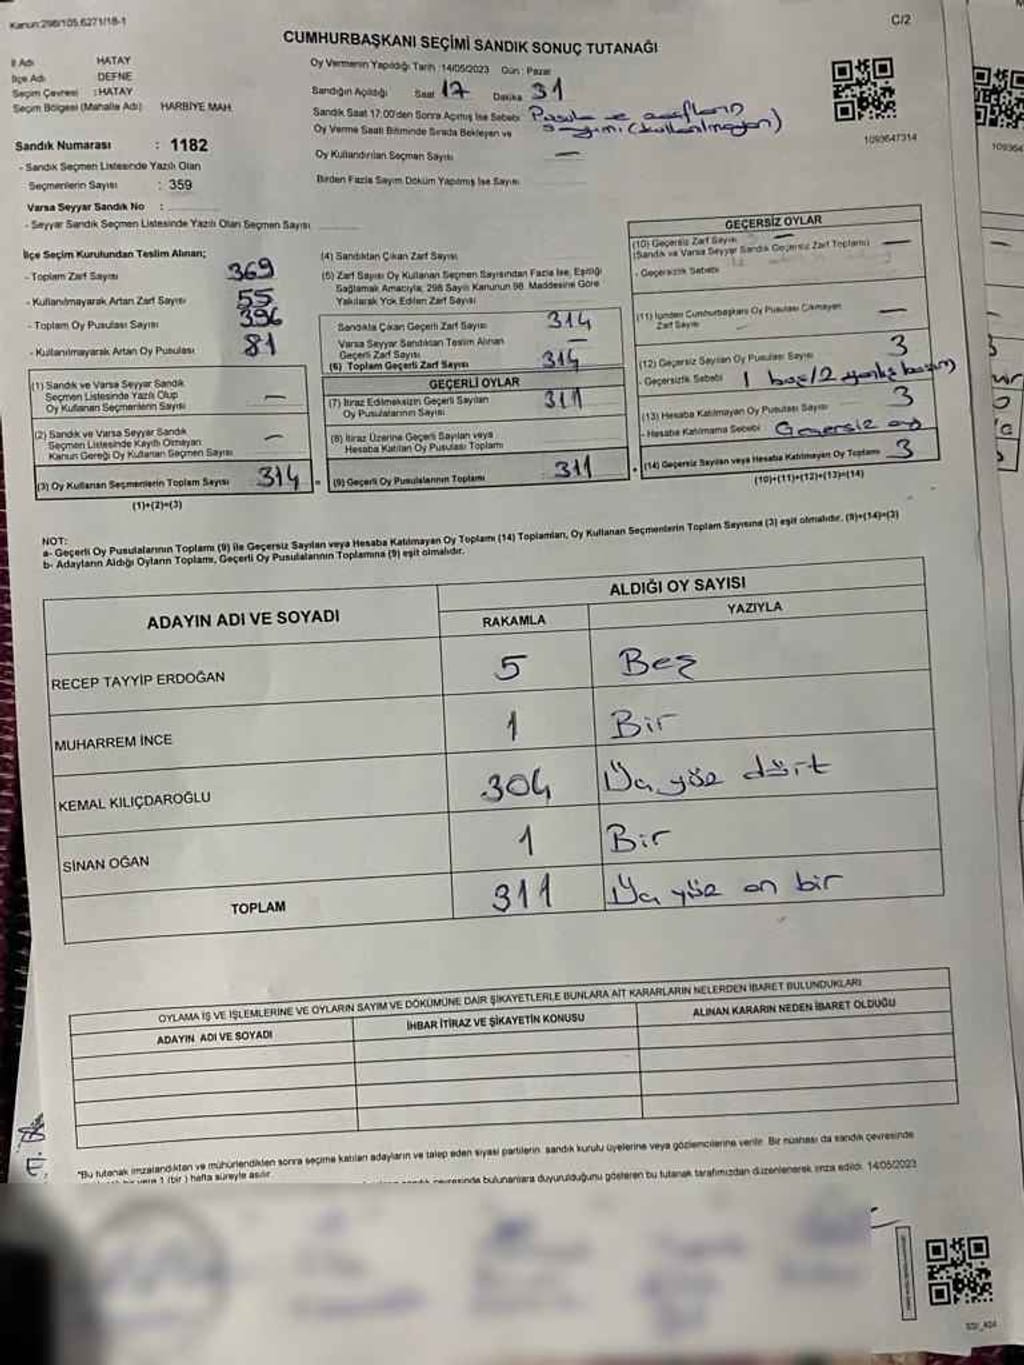 Kanun:298/105,6271/18-1
C/2
CUMHURBAŞKANI SEÇİMİ SANDIK SONUÇ TUTANAĞI
İl Adı HATAY
İlçe Adı DEFNE
Seçim Çevresi : HATAY
Seçim Bölgesi (Mahalle Adı) HARBİYE MAH.
Oy Vermenin Yapıldığı Tarih :14/05/2023 Gün : Pazar
Sandığın Açıldığı Saat 17 Dakika 31
Sandık Saat 17.00'den Sonra Açılmış İse Sebebi Pusula ve zarfların
sayımı (kullanılmayan)
Oy Verme Saati Bitiminde Sırada Bekleyen ve
Oy Kullandırılan Seçmen Sayısı —
Birden Fazla Sayım Döküm Yapılmış İse Sayısı
1093647314
Sandık Numarası : 1182
- Sandık Seçmen Listesinde Yazılı Olan
Seçmenlerin Sayısı : 359
Varsa Seyyar Sandık No :
- Seyyar Sandık Seçmen Listesinde Yazılı Olan Seçmen Sayısı
İlçe Seçim Kurulundan Teslim Alınan;
- Toplam Zarf Sayısı 369
- Kullanılmayarak Artan Zarf Sayısı 55
- Toplam Oy Pusulası Sayısı 396
- Kullanılmayarak Artan Oy Pusulası 81
(1) Sandık ve Varsa Seyyar Sandık
Seçmen Listesinde Yazılı Olup
Oy Kullanan Seçmenlerin Sayısı —
(2) Sandık ve Varsa Seyyar Sandık
Seçmen Listesinde Kayıtlı Olmayan
Kanun Gereği Oy Kullanan Seçmen Sayısı —
(3) Oy Kullanan Seçmenlerin Toplam Sayısı 314
(1)+(2)=(3)
(4) Sandıktan Çıkan Zarf Sayısı
(5) Zarf Sayısı Oy Kullanan Seçmen Sayısından Fazla İse, Eşitliği
Sağlamak Amacıyla; 298 Sayılı Kanunun 98. Maddesine Göre
Yakılarak Yok Edilen Zarf Sayısı
Sandıkta Çıkan Geçerli Zarf Sayısı 314
Varsa Seyyar Sandıktan Teslim Alınan
Geçerli Zarf Sayısı —
(6) Toplam Geçerli Zarf Sayısı 314
GEÇERLİ OYLAR
(7) İtiraz Edilmeksizin Geçerli Sayılan
Oy Pusulalarının Sayısı 311
(8) İtiraz Üzerine Geçerli Sayılan veya
Hesaba Katılan Oy Pusulası Toplamı
(9) Geçerli Oy Pusulalarının Toplamı 311
GEÇERSİZ OYLAR
(10) Geçersiz Zarf Sayısı
(Sandık ve Varsa Seyyar Sandık Geçersiz Zarf Toplamı) —
- Geçersizlik Sebebi
(11) İçinden Cumhurbaşkanı Oy Pusulası Çıkmayan
Zarf Sayısı —
(12) Geçersiz Sayılan Oy Pusulası Sayısı 3
- Geçersizlik Sebebi 1 boş/2 yanlış basım)
(13) Hesaba Katılmayan Oy Pusulası Sayısı 3
- Hesaba Katılmama Sebebi Geçersiz oy
(14) Geçersiz Sayılan veya Hesaba Katılmayan Oy Toplamı 3
(10)+(11)+(12)+(13)=(14)
NOT:
a- Geçerli Oy Pusulalarının Toplamı (9) ile Geçersiz Sayılan veya Hesaba Katılmayan Oy Toplamı (14) Toplamları, Oy Kullanan Seçmenlerin Toplam Sayısına (3) eşit olmalıdır. (9)+(14)=(3)
b- Adayların Aldığı Oyların Toplamı, Geçerli Oy Pusulalarının Toplamına (9) eşit olmalıdır.
ADAYIN ADI VE SOYADI ALDIĞI OY SAYISI
RAKAMLA YAZIYLA
RECEP TAYYİP ERDOĞAN 5 Beş
MUHARREM İNCE 1 Bir
KEMAL KILIÇDAROĞLU 304 Üç yüz dört
SİNAN OĞAN 1 Bir
TOPLAM 311 Üç yüz on bir
OYLAMA İŞ VE İŞLEMLERİNE VE OYLARIN SAYIM VE DÖKÜMÜNE DAİR ŞİKAYETLERLE BUNLARA AİT KARARLARIN NELERDEN İBARET BULUNDUKLARI
ADAYIN ADI VE SOYADI İHBAR İTİRAZ VE ŞİKAYETİN KONUSU ALINAN KARARIN NEDEN İBARET OLDUĞU
*Bu tutanak imzalandıktan ve mühürlendikten sonra seçime katılan adayların ve talep eden siyasi partilerin sandık kurulu üyelerine veya gözlemcilerine verilir. Bir nüshası da sandık çevresinde
1 (bir) hafta süreyle asılır.
çevresinde bulunanlara duyurulduğunu gösteren bu tutanak tarafımızdan düzenlenerek imza edildi. 14/05/2023